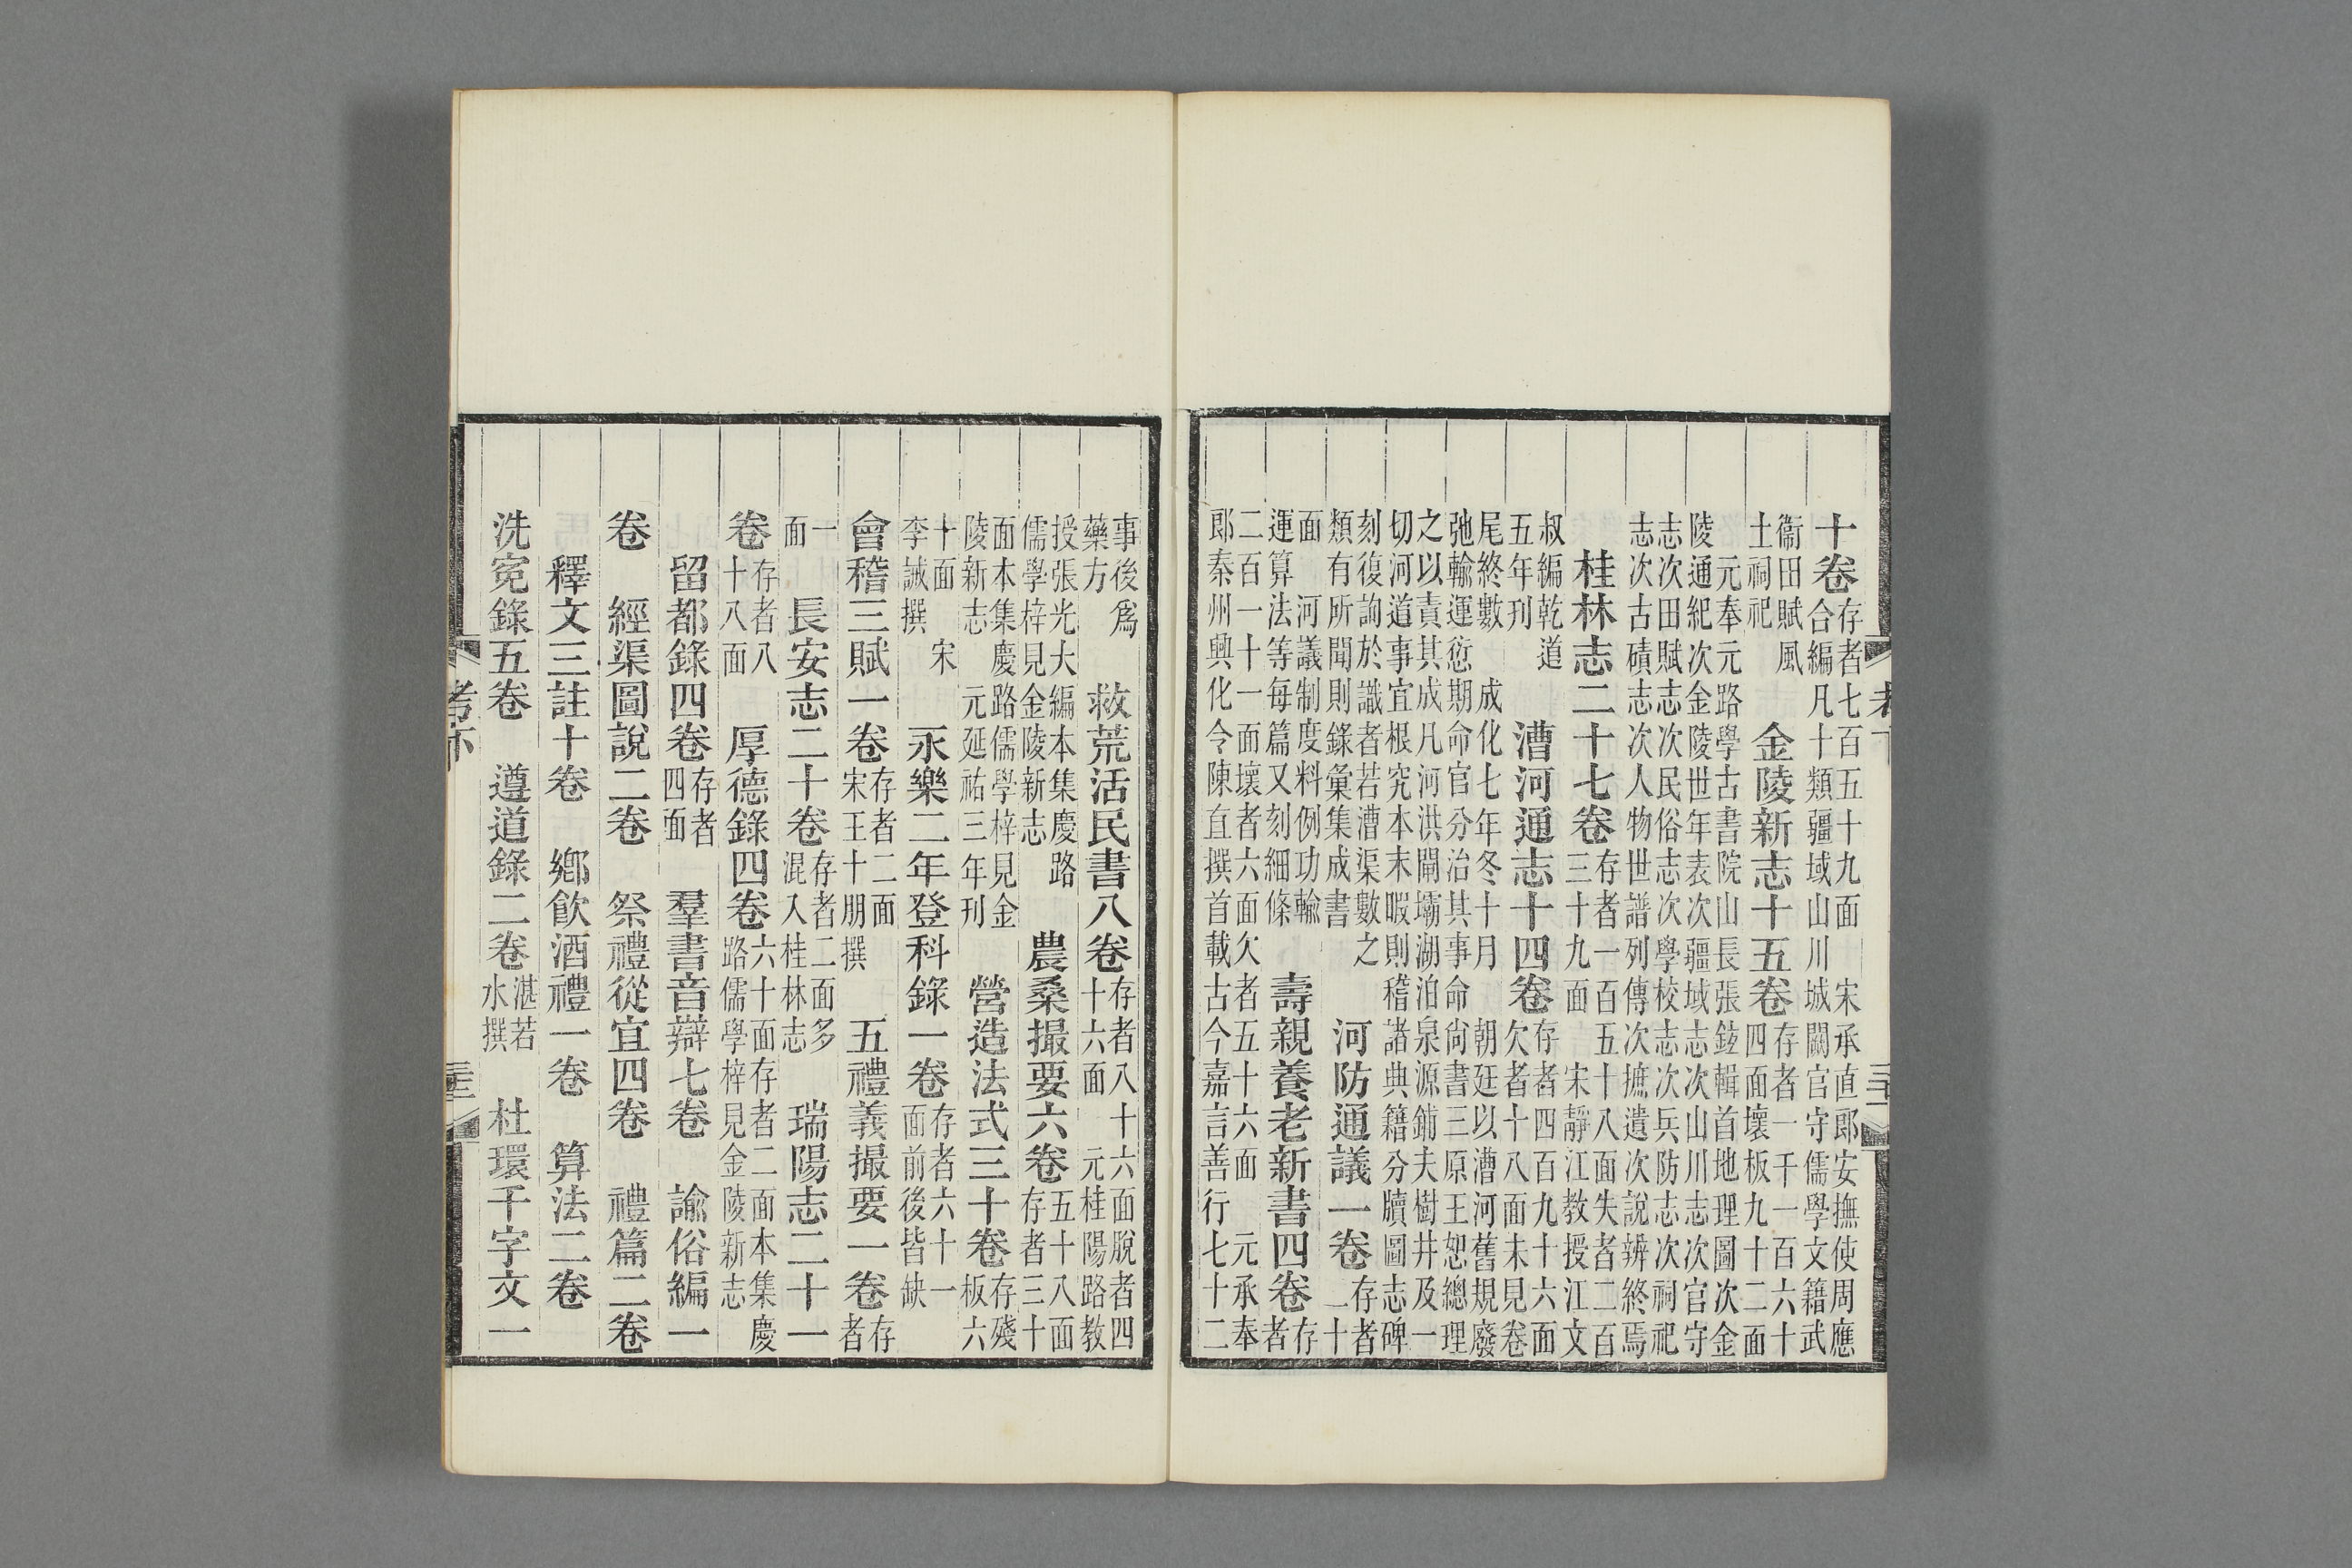 十卷
存者七百五十九面　宋承直郎安撫使周應
合編凡十類疆域山川城闕官守儒學文籍武
衞田賦風
土祠祀
金陵新志十五卷
存者一千一百六十
四面壞板九十二面
元奉元路學古書院山長張鉉輯首地理圖次金
陵通紀次金陵世年表次疆域志次山川志次官守
志次田賦志次民俗志次學校志次兵防志次祠祀
志次古磧志次人物世譜列傳次摭遺次說辨終焉
桂林志二十七卷
存者一百五十八面失者二百
三十九面　宋靜江教授江文
叔編乾道
五年刊
漕河通志十四卷
存者四百九十六面
欠者十八面未見卷
尾終數　成化七年冬十月　朝廷以漕河舊規廢
弛輸運愆期命官分治其事命尙書三原王恕總理
之以責其成凡河洪閘壩湖泊泉源鋪夫樹井及一
切河道事宜根究本末暇則稽諸典籍分牘圖志碑
刻復詢於識者若漕渠數之
類有所聞則錄彙集成書
河防通議一卷
存者
二十
面　河議制度料例功輸
運算法等每篇又刻細條
壽親養老新書四卷
存
者
二百一十一面壞者六面欠者五十六面　元承奉
郎泰州興化令陳直撰首載古今嘉言善行七十二
考下
事後爲
藥方
救荒活民書八卷
存者八十六面脫者四
十六面　元桂陽路教
授張光大編本集慶路
儒學梓見金陵新志
農桑撮要六卷
五十八面
存者三十
面本集慶路儒學梓見金
陵新志　元延祐三年刊
營造法式三十卷
存殘
板六
十面　宋
李誡撰
永樂二年登科錄一卷
存者六十一
面前後皆缺
會稽三賦一卷
存者二面
宋王十朋撰
五禮義撮要一卷
存
者
一
面
長安志二十卷
存者二面多
混入桂林志
瑞陽志二十一
卷
存者八
十八面
厚德錄四卷
六十面存者二面本集慶
路儒學梓見金陵新志
留都錄四卷
存者
四面
羣書音辯七卷　諭俗編一
卷　經渠圖說二卷　祭禮從宜四卷　禮篇二卷
釋文三註十卷　鄉飮酒禮一卷　算法二卷
洗冤錄五卷　遵道錄二卷
湛若
水撰
杜環千字文一
考下